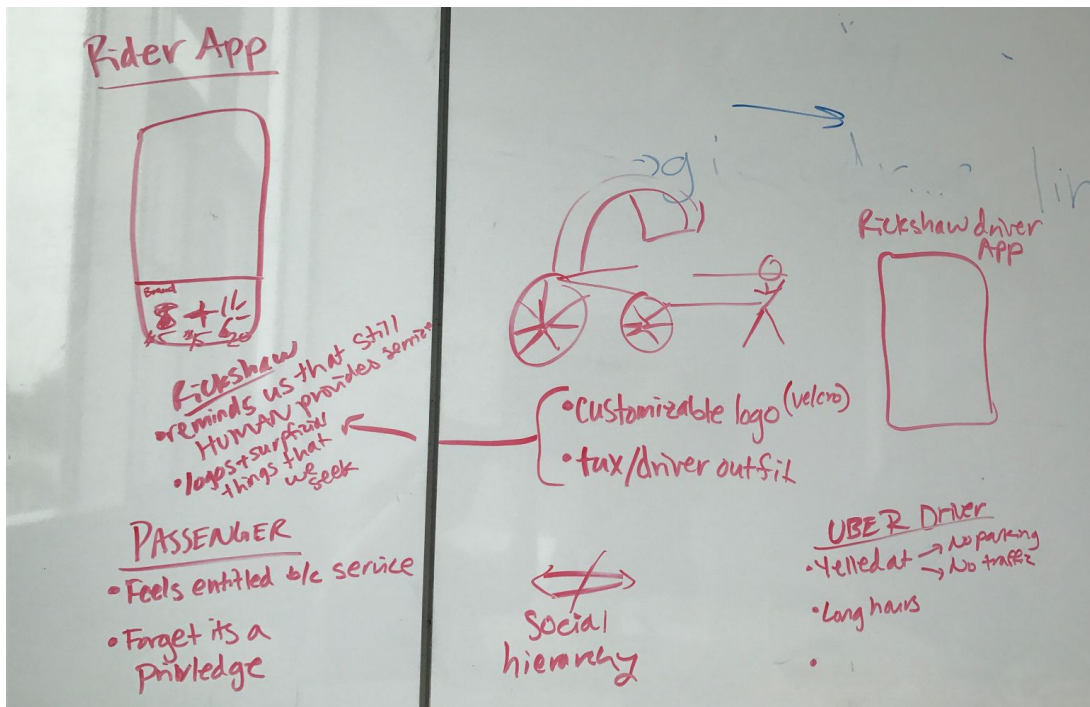 Rider App
Brand
$5 $15 $20
Rickshaw
• reminds us that still
HUMAN provides service
• logos + surpficial
things that
we
seek
PASSENGER
• Feels entitled b/c service
• Forget its a
privledge
• customizable logo (velcro)
• tux/driver outfit
Social
hierarchy
Rickshaw driver
App
UBER Driver
• Yelled at → No parking
→ No traffic
• Long hours
•